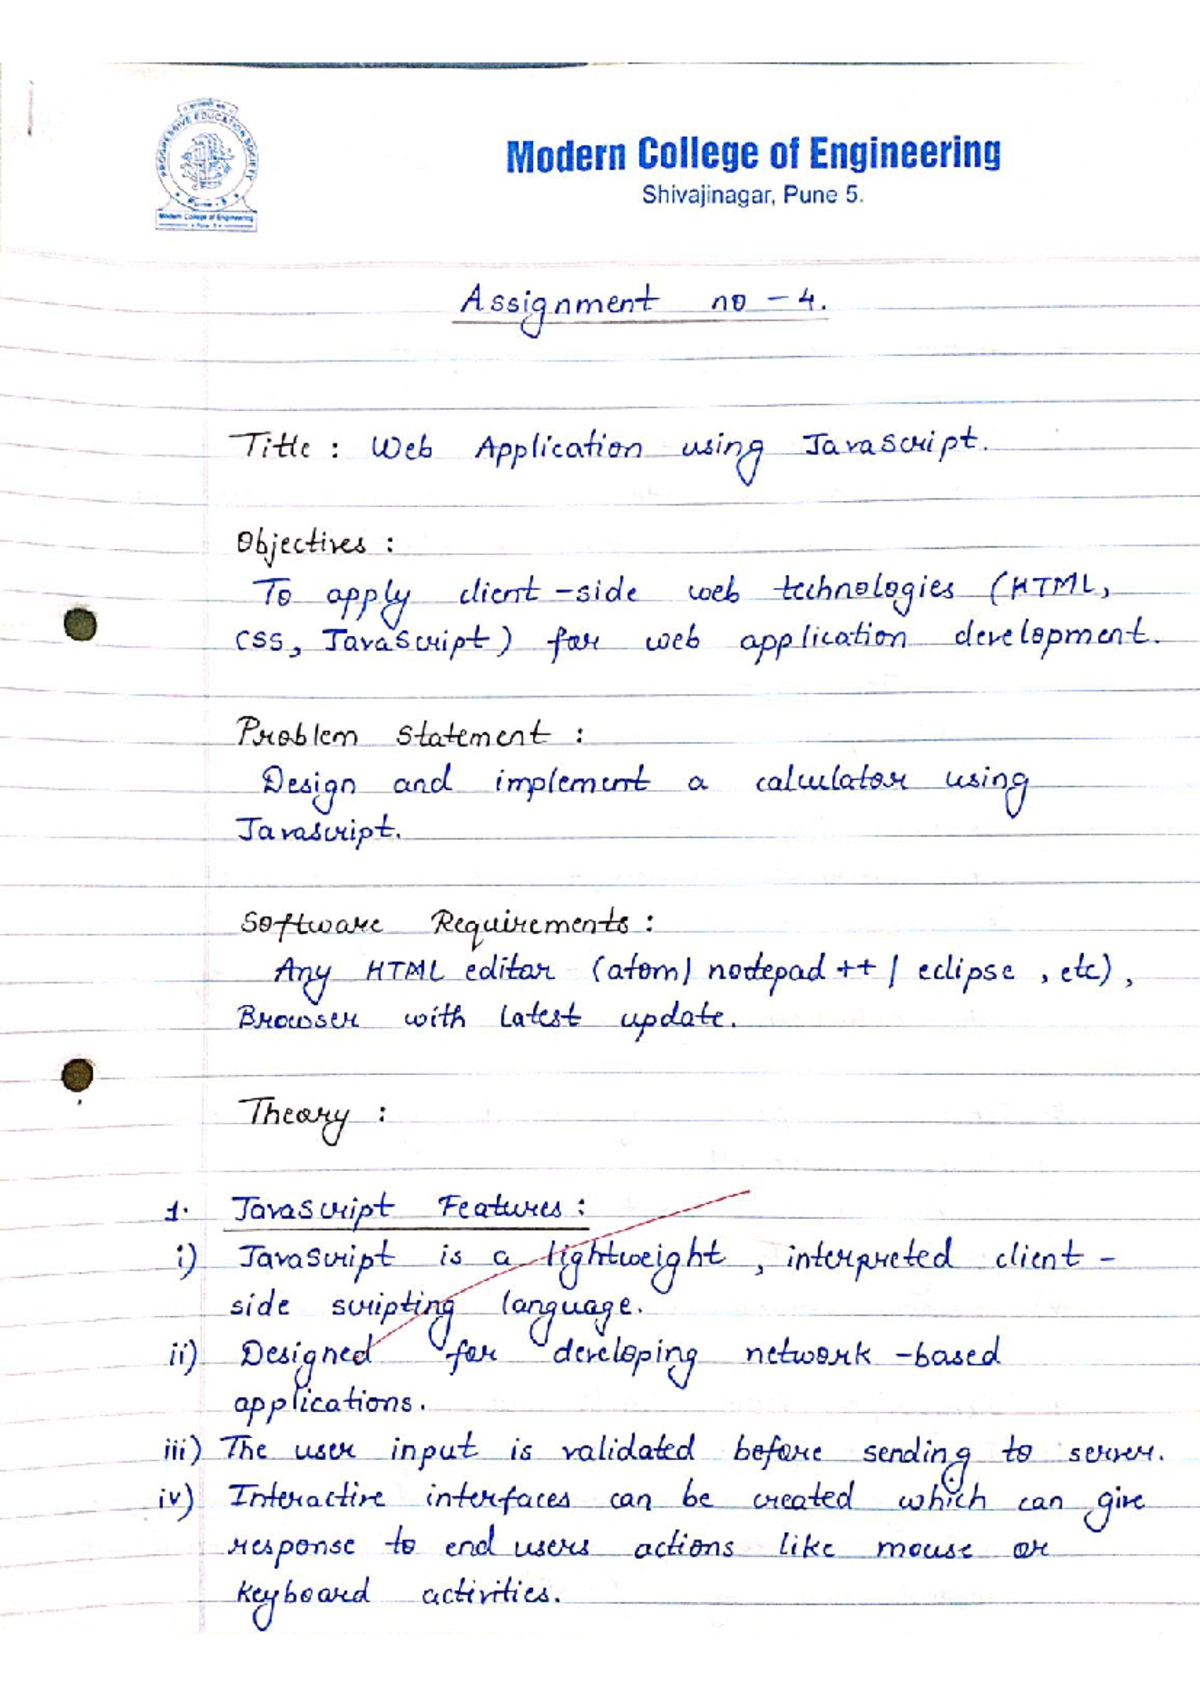 PROGRESSIVE EDUCATION SOCIETY
Modern College of Engineering
Pune 5
Modern College of Engineering
Shivajinagar, Pune 5.
Assignment no - 4.
Title : Web Application using JavaScript.
Objectives :
To apply client-side web technologies (HTML,
CSS, JavaScript) for web application development.
Problem Statement :
Design and implement a calculator using
Javascript.
Software Requirements :
Any HTML editor (atom/ notepad ++ / eclipse , etc) ,
Browser with latest update.
Theory :
1. JavaScript Features :
i) JavaScript is a lightweight , interpreted client -
side scripting language.
ii) Designed for developing network -based
applications.
iii) The user input is validated before sending to server.
iv) Interactive interfaces can be created which can give
response to end users actions like mouse or
keyboard activities.